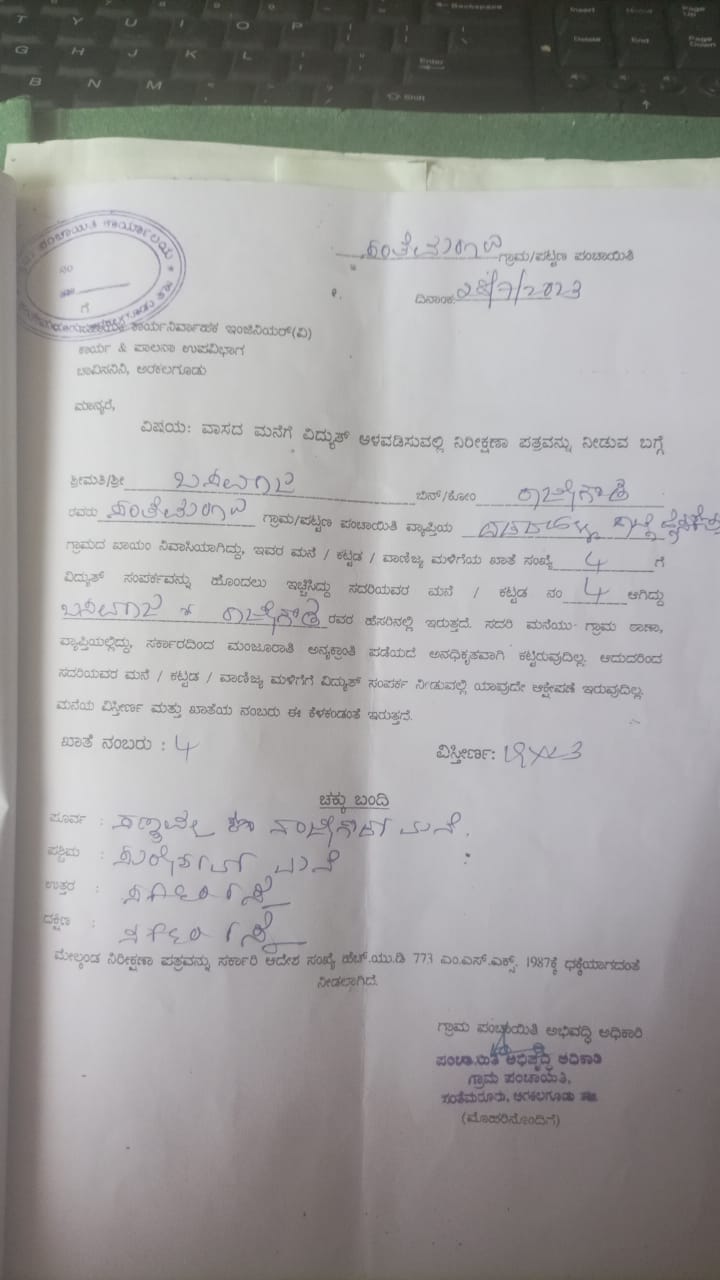 ಪಂಚಾಯಿತಿ ಕಾರ್ಯಾಲಯ
ಸಂತೆಮರೂರು ಗ್ರಾಮ/ಪಟ್ಟಣ ಪಂಚಾಯಿತಿ
ದಿನಾಂಕ: /7/2023
ಗೆ
ಕಾರ್ಯನಿರ್ವಾಹಕ ಇಂಜಿನಿಯರ್(ವಿ)
ಕಾರ್ಯ & ಪಾಲನಾ ಉಪವಿಭಾಗ
ಚಾವಿಸನಿನಿ, ಅರಕಲಗೂಡು
ಮಾನ್ಯರೆ,
ವಿಷಯ: ವಾಸದ ಮನೆಗೆ ವಿದ್ಯುತ್ ಅಳವಡಿಸುವಲ್ಲಿ ನಿರೀಕ್ಷಣಾ ಪತ್ರವನ್ನು ನೀಡುವ ಬಗ್ಗೆ
ಶ್ರೀಮತಿ/ಶ್ರೀ ಬಸವರಾಜ ಬಿನ್/ಕೋಂ ರಾಜೇಗೌಡ
ರವರು ಸಂತೆಮರೂರು ಗ್ರಾಮ/ಪಟ್ಟಣ ಪಂಚಾಯಿತಿ ವ್ಯಾಪ್ತಿಯ
ಗ್ರಾಮದ ಖಾಯಂ ನಿವಾಸಿಯಾಗಿದ್ದು, ಇವರ ಮನೆ / ಕಟ್ಟಡ / ವಾಣಿಜ್ಯ ಮಳಿಗೆಯ ಖಾತೆ ಸಂಖ್ಯೆ 4 ಗೆ
ವಿದ್ಯುತ್ ಸಂಪರ್ಕವನ್ನು ಹೊಂದಲು ಇಚ್ಚಿಸಿದ್ದು ಸದರಿಯವರ ಮನೆ / ಕಟ್ಟಡ ನಂ 4 ಆಗಿದ್ದು
ಬಸವರಾಜ ರಾಜೇಗೌಡ ರವರ ಹೆಸರಿನಲ್ಲಿ ಇರುತ್ತದೆ. ಸದರಿ ಮನೆಯು ಗ್ರಾಮ ಠಾಣಾ,
ವ್ಯಾಪ್ತಿಯಲ್ಲಿದ್ದು, ಸರ್ಕಾರದಿಂದ ಮಂಜೂರಾತಿ ಅನ್ಯಕ್ರಾಂತಿ ಪಡೆಯದೆ ಅನಧಿಕೃತವಾಗಿ ಕಟ್ಟಿರುವುದಿಲ್ಲ. ಆದುದರಿಂದ
ಸದರಿಯವರ ಮನೆ / ಕಟ್ಟಡ / ವಾಣಿಜ್ಯ ಮಳಿಗೆಗೆ ವಿದ್ಯುತ್ ಸಂಪರ್ಕ ನೀಡುವಲ್ಲಿ ಯಾವುದೇ ಆಕ್ಷೇಪಣೆ ಇರುವುದಿಲ್ಲ
ಮನೆಯ ವಿಸ್ತೀರ್ಣ ಮತ್ತು ಖಾತೆಯ ನಂಬರು ಈ ಕೆಳಕಂಡಂತೆ ಇರುತ್ತದೆ.
ಖಾತೆ ನಂಬರು : 4 ವಿಸ್ತೀರ್ಣ:
ಚಕ್ಕು ಬಂದಿ
ಪೂರ್ವ : ಮನೆ.
ಪಶ್ಚಿಮ : ಮನೆ
ಉತ್ತರ : ರಸ್ತೆ
ದಕ್ಷಿಣ : ರಸ್ತೆ
ಮೇಲ್ಕಂಡ ನಿರೀಕ್ಷಣಾ ಪತ್ರವನ್ನು ಸರ್ಕಾರಿ ಆದೇಶ ಸಂಖ್ಯೆ ಹೆಚ್.ಯು.ಡಿ 773 ಎಂ.ಎನ್.ಎಕ್ಸ್. 1987ಕ್ಕೆ ಧಕ್ಕೆಯಾಗದಂತೆ
ನೀಡಲಾಗಿದೆ.
ಗ್ರಾಮ ಪಂಚಾಯಿತಿ ಅಭಿವದ್ಧಿ ಅಧಿಕಾರಿ
ಪಂಚಾಯಿತಿ ಅಭಿವೃದ್ಧಿ ಅಧಿಕಾರಿ
ಗ್ರಾಮ ಪಂಚಾಯಿತಿ,
ಸಂತೆಮರೂರು, ಅರಕಲಗೂಡು ತಾ.
(ಮೊಹರಿನೊಂದಿಗೆ)